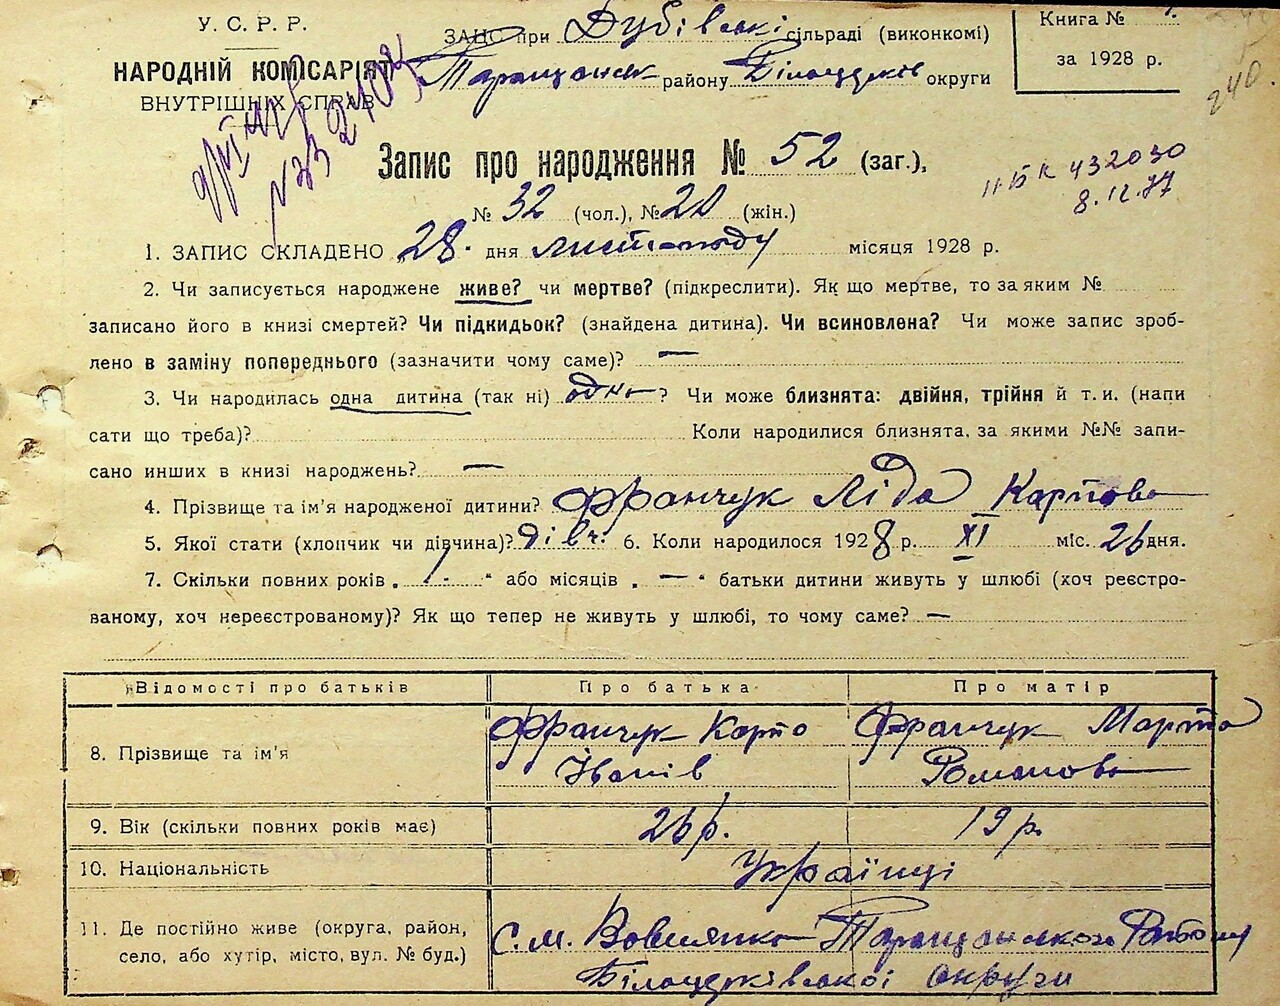 У. С. Р. Р.
НАРОДНІЙ КОМІСАРІЯТ
ВНУТРІШНІХ СПРАВ
ЗАЦС при Дубівські сільраді (виконкомі)
Таращанськ району Білоцерків округи
Книга №
за 1928 р.
240.
Запис про народження № 52 (заг.),
№ 32 (чол.), № 20 (жін.)
432030
8.12.77
1. ЗАПИС СКЛАДЕНО „28." дня листопаду місяця 1928 р.
2. Чи записується народжене живе? чи мертве? (підкреслити). Як що мертве, то за яким №
записано його в книзі смертей? Чи підкидьок? (знайдена дитина). Чи всиновлена? Чи може запис зроб-
лено в заміну попереднього (зазначити чому саме)? —
3. Чи народилась одна дитина (так ні) одно ? Чи може близнята: двійня, трійня й т. и. (напи
сати що треба)? Коли народилися близнята, за якими №№ запи-
сано инших в книзі народжень? —
4. Прізвище та ім'я народженої дитини? Франчук Ліда Карпова
5. Якої стати (хлопчик чи дівчина)? дівч. 6. Коли народилося 1928 р. XI міс. 26 дня.
7. Скільки повних років „ 1. " або місяців „ — " батьки дитини живуть у шлюбі (хоч реєстро-
ваному, хоч нереєстрованому)? Як що тепер не живуть у шлюбі, то чому саме? —
Відомості про батьків Про батька Про матір
8. Прізвище та ім'я Франчук Карпо Франчук Марта
Іванів Романова
9. Вік (скільки повних років має) 26 р. 19 р.
10. Національність Українці
11. Де постійно живе (округа, район,
село, або хутір, місто, вул. № буд.)
с. м. Вовнянка Таращанського Району
Білоцерківської округи